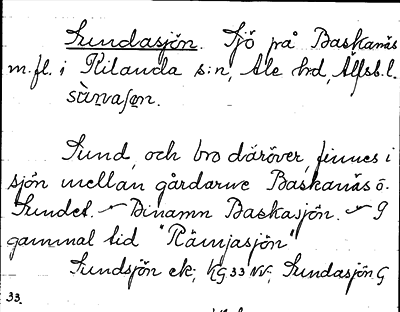 Sundasjön. Sjö på Baskanäs
m.fl. i Kilanda s:n, Ale hrd, Älfsb.l.
Sund, och bro däröver, finnes i
sjön mellan gårdarne Baskanäs o.
Sundet. – Binamn Baskasjön. – I
gammal tid "Rämjasjön"
Sundsjön ek; KG 33 NV; Sundasjön G
33.